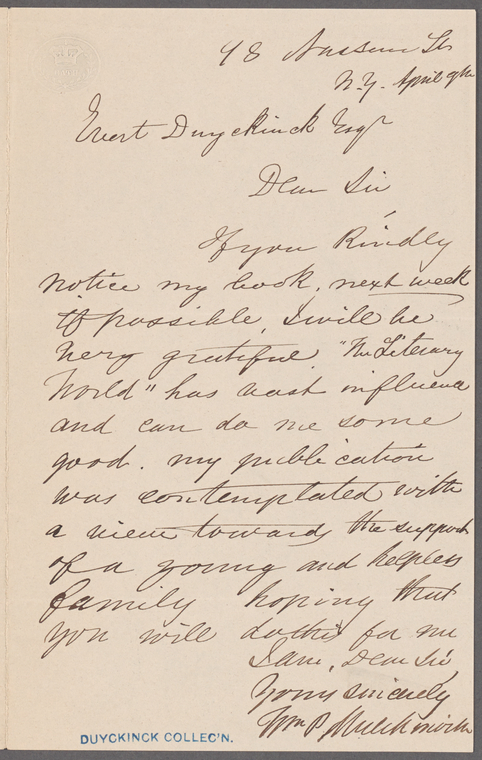 48 Nassau St
N.Y. April 9th
Evert Duyckinck Esqr
Dear Sir
If you Kindly
notice my book, next week
if possible, I will be
very grateful. "The Literary
World" has vast influence
and can do me some
good. my publication
was contemplated with
a view towards the support
of a young and helpless
family hoping that
you will do this for me
I am, Dear Sir
Yours sincerely
Wm P. 
DUYCKINCK COLLEC'N.